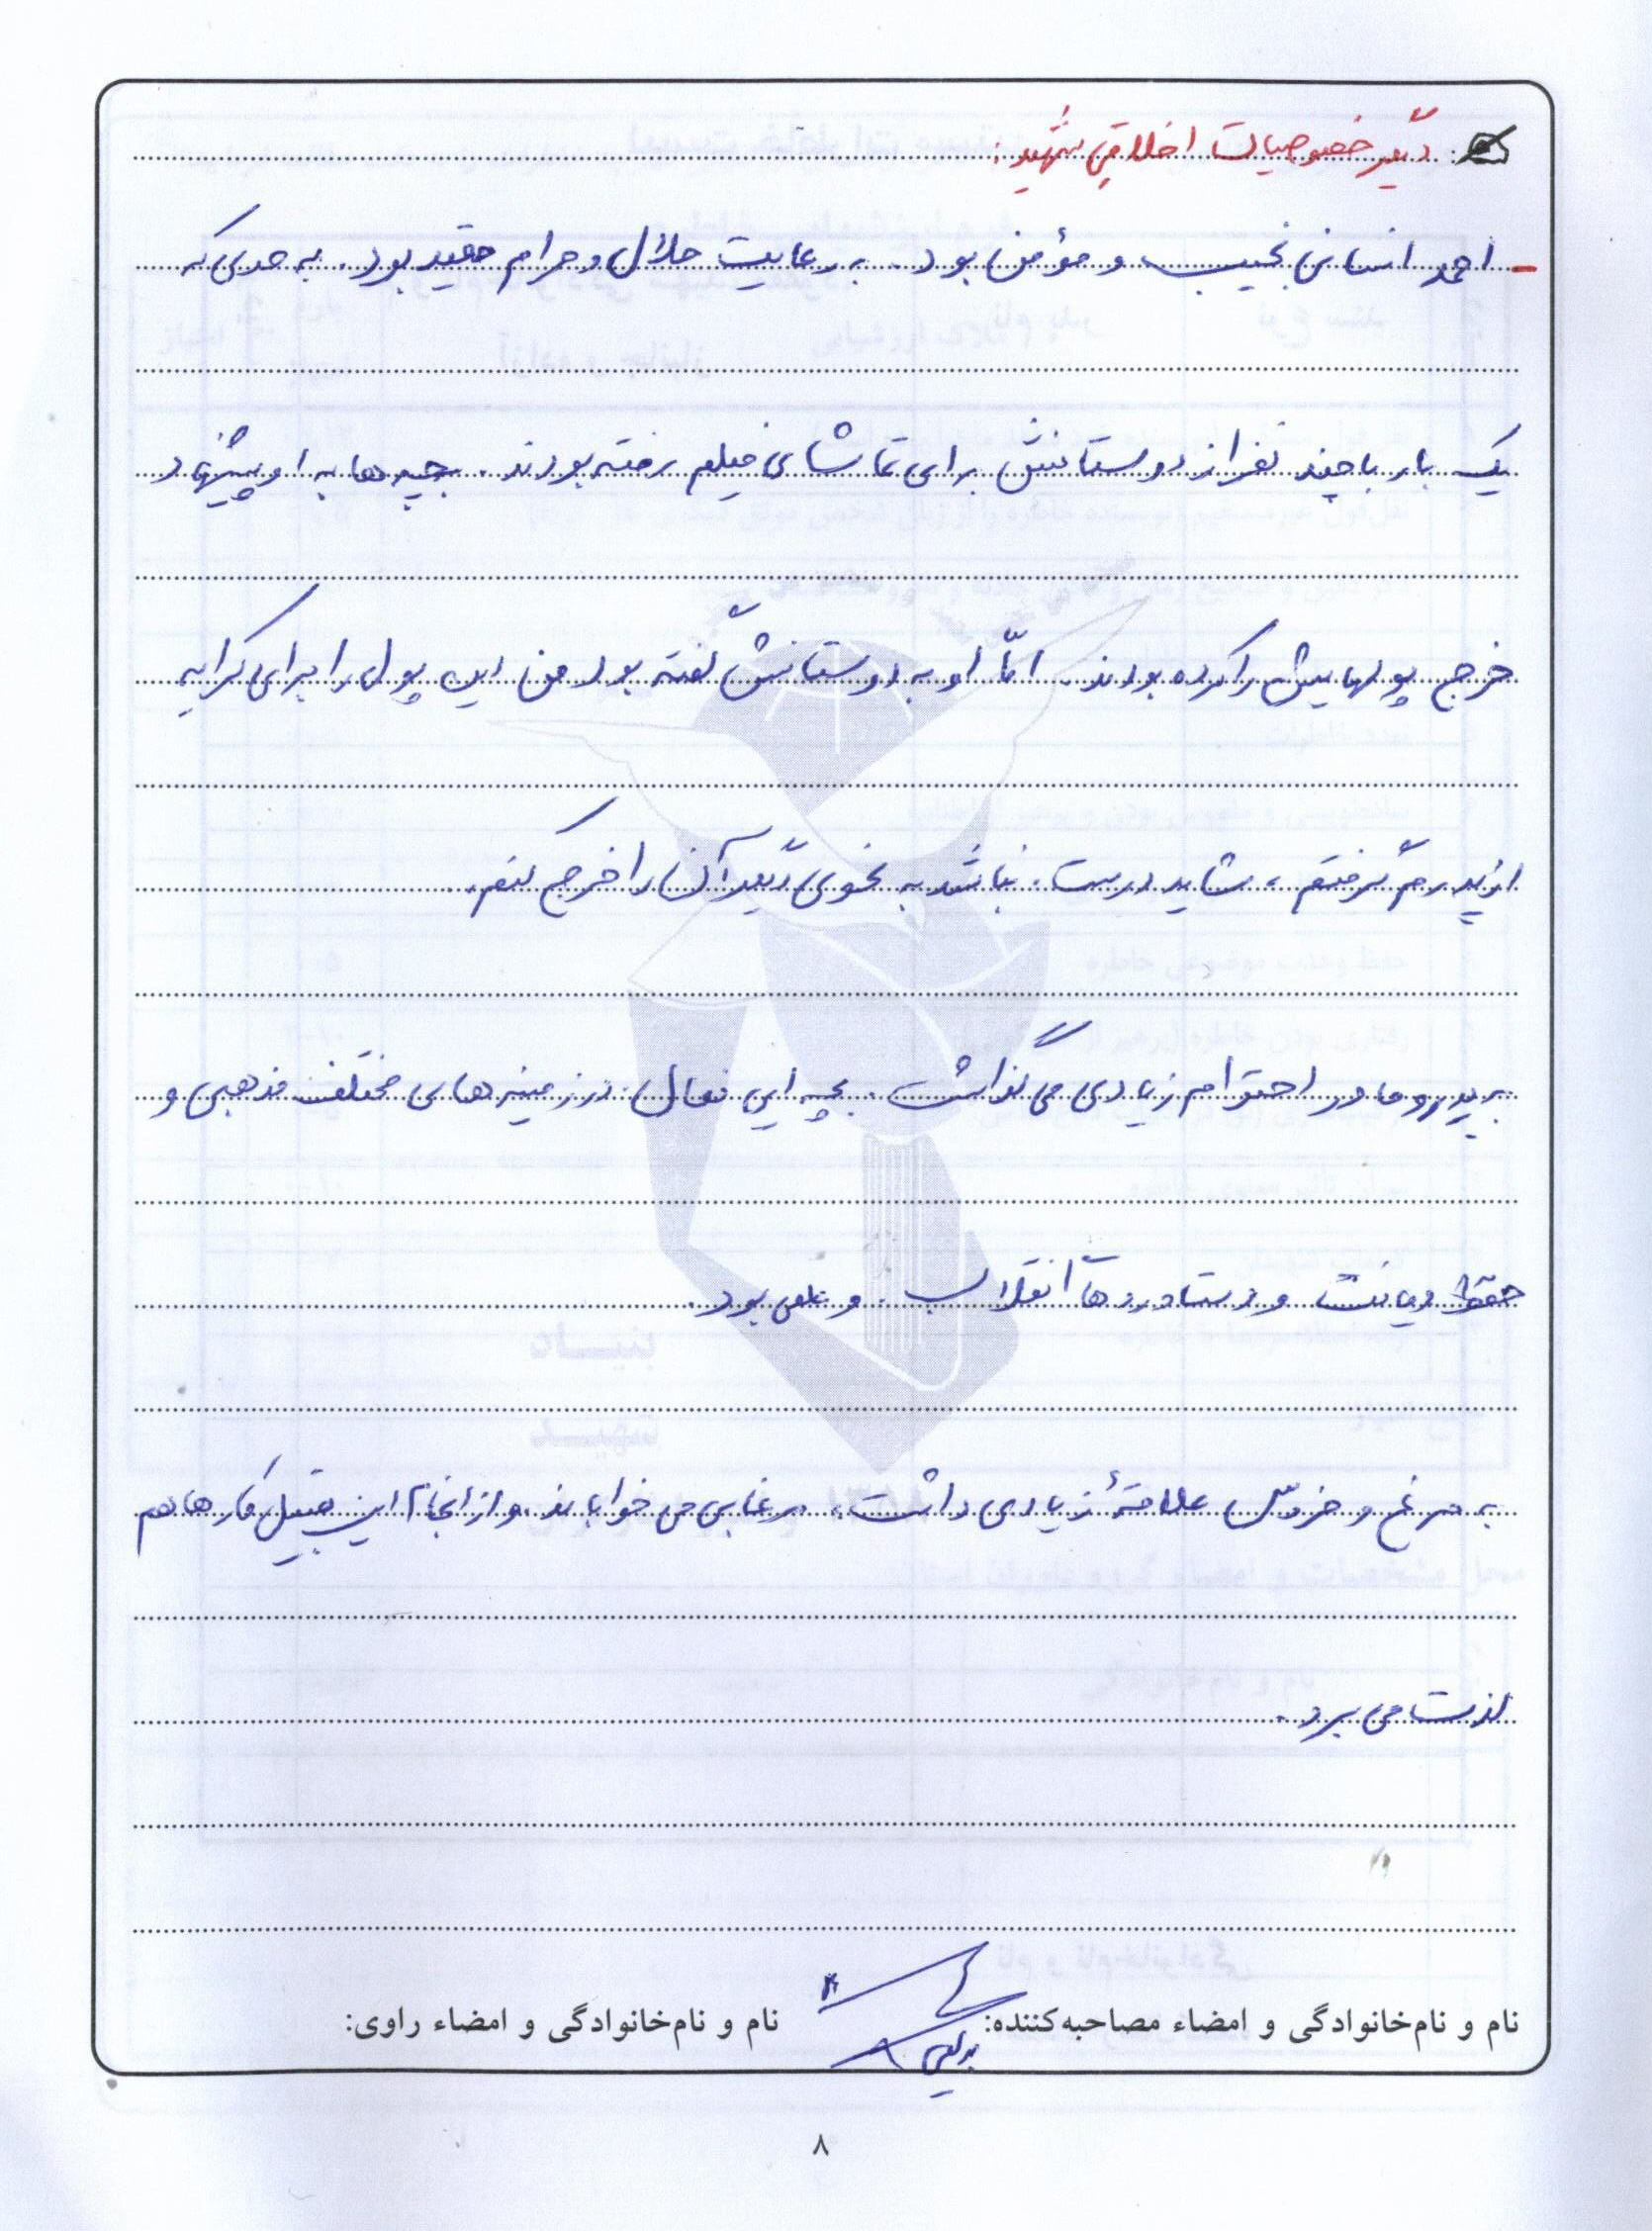 دیگر خصوصیات اخلاقی شهید:
- احمد انسانی نجیب و مؤمن بود. به رعایت حلال و حرام مقید بود. به حدی که
یک بار با چند نفر از دوستانش برای تماشای فیلم رفته بودند. بچه ها به او پیشنهاد
خرج پولهایش را کرده بودند. امّا او به دوستانش گفته بود من این پول را برای کرایه
از پدرم گرفتم، شاید درست نباشد به نحوی دیگر آن را خرج کنم.
به پدر و مادر احترام زیادی می گذاشت. بچه ایی فعال در زمینه های مختلف مذهبی و
حفظ دیانت و دستاوردهای انقلاب و بود.
به مرغ و خروس علاقۀ زیادی داشت، مرغابی می خواباند و از انجام این قبیل کارها هم
لذت می برد.
نام و نام‌خانوادگی و امضاء مصاحبه‌کننده: نام و نام‌خانوادگی و امضاء راوی:
۸